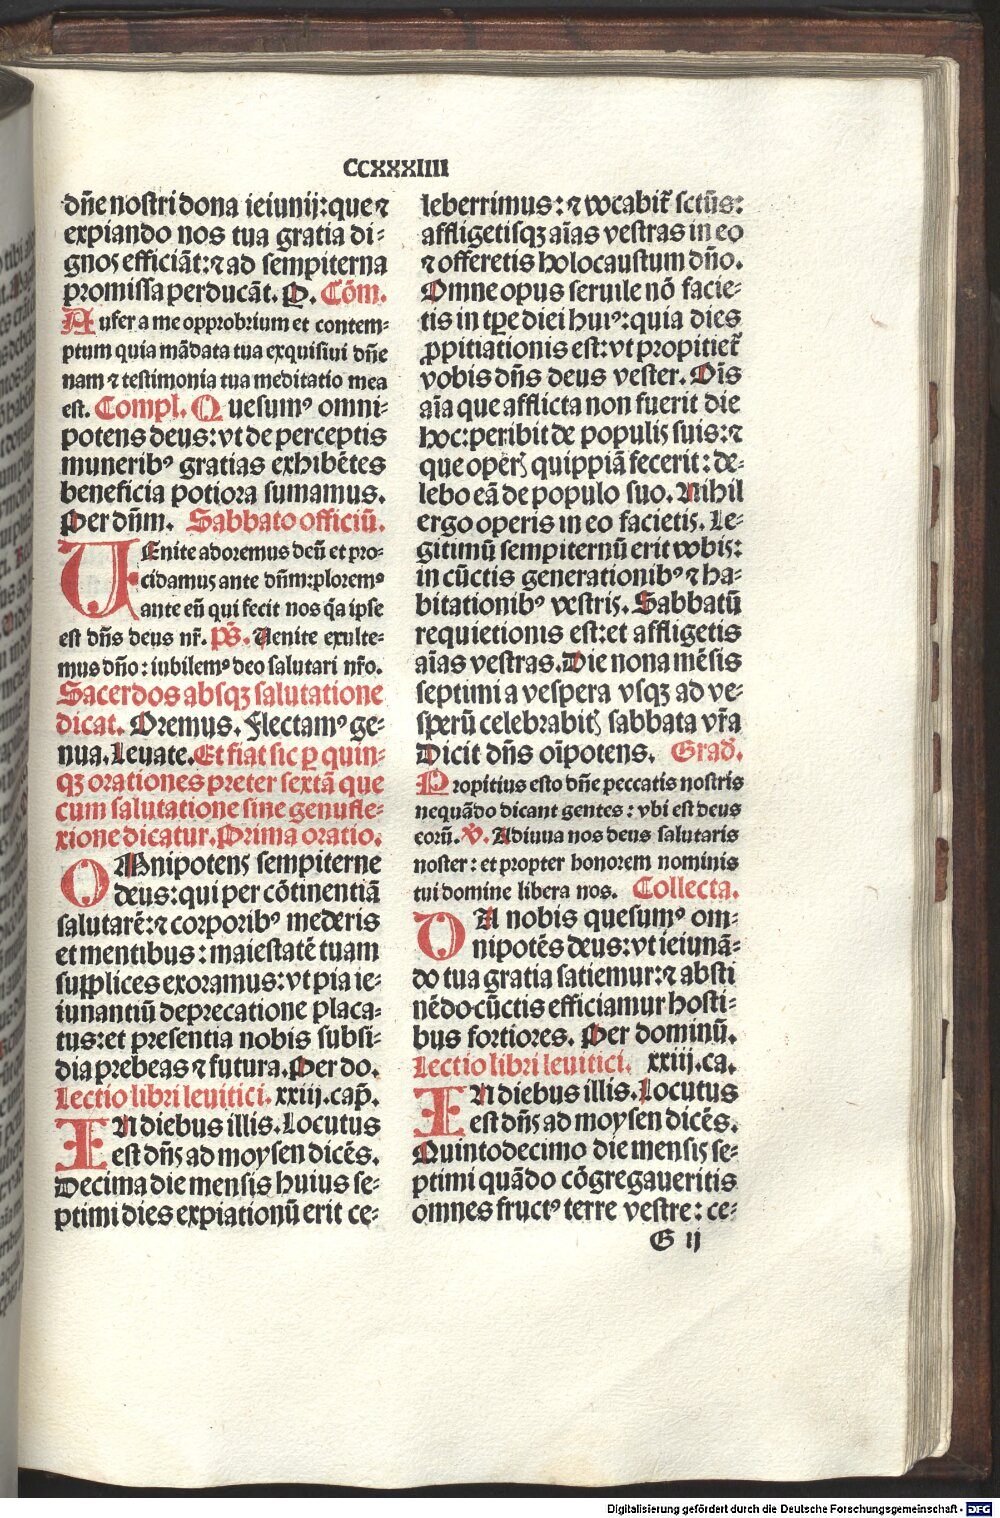 CCXXXIIII
dñe nostri dona ieiunij: que ⁊
expiando nos tua gratia di-
gnos efficiãt: ⁊ ad sempiterna
promissa perducãt. P. Cõm.
Aufer a me opprobrium et contem-
ptum quia mãdata tua exquisiui dñe
nam ⁊ testimonia tua meditatio mea
est. Compl. Quesumꝰ omni-
potens deus: vt de perceptis
muneribꝰ gratias exhibẽtes
beneficia potiora sumamus.
Per dñm. Sabbato officiũ.
VEnite adoremus deũ et pro-
cidamus ante dñm: ploremꝰ
ante eũ qui fecit nos q̃a ipse
est dñs deus nr̃. p̃s. Venite exulte-
mus dño: iubilemꝰ deo salutari nr̃o.
Sacerdos absqꝫ salutatione
dicat. Oremus. Flectamꝰ ge-
nua. Leuate. Et fiat sic ꝑ quin-
qꝫ orationes preter sextã que
cum salutatione sine genufle-
xione dicatur. Prima oratio.
OMnipotens sempiterne
deus: qui per cõtinentiã
salutarẽ: ⁊ corporibꝰ mederis
et mentibus: maiestatẽ tuam
supplices exoramus: vt pia ie-
iunantiũ deprecatione placa-
tus: et presentia nobis subsi-
dia prebeas ⁊ futura. Per do.
Lectio libri leuitici. xxiij. cap̃.
IN diebus illis. Locutus
est dñs ad moysen dicẽs.
Decima die mensis huius se-
ptimi dies expiationũ erit ce-
leberrimus: ⁊ vocabit᷑ sctũs:
affligetisqꝫ aĩas vestras in eo
⁊ offeretis holocaustum dño.
Omne opus seruile nõ facie-
tis in tp̃e diei huiꝰ: quia dies
ꝓpitiationis est: vt propitiet᷑
vobis dñs deus vester. Oĩs
aĩa que afflicta non fuerit die
hoc: peribit de populis suis: ⁊
que operꝭ quippiã fecerit: de-
lebo eã de populo suo. Nihil
ergo operis in eo facietis. Le-
gitimũ sempiternũ erit vobis:
in cũctis generationibꝰ ⁊ ha-
bitationibꝰ vestris. Sabbatũ
requietionis est: et affligetis
aĩas vestras. Die nona mẽsis
septimi a vespera vsqꝫ ad ve-
sperũ celebrabitꝭ sabbata vr̃a
Dicit dñs oĩpotens. Grad̃.
Propitius esto dñe peccatis nostris
nequãdo dicant gentes: vbi est deus
eorũ. ℣. Adiuua nos deus salutaris
noster: et propter honorem nominis
tui domine libera nos. Collecta.
DA nobis quesumꝰ om-
nipotẽs deus: vt ieiunã-
do tua gratia satiemur: ⁊ absti
nẽdo cũctis efficiamur hosti-
bus fortiores. Per dominũ.
Lectio libri leuitici. xxiij. ca.
IN diebus illis. Locutus
est dñs ad moysen dicẽs.
Quintodecimo die mensis se-
ptimi quãdo cõgregaueritis
omnes fructꝰ terre vestre: ce-
G ij
Digitalisierung gefördert durch die Deutsche Forschungsgemeinschaft - DFG